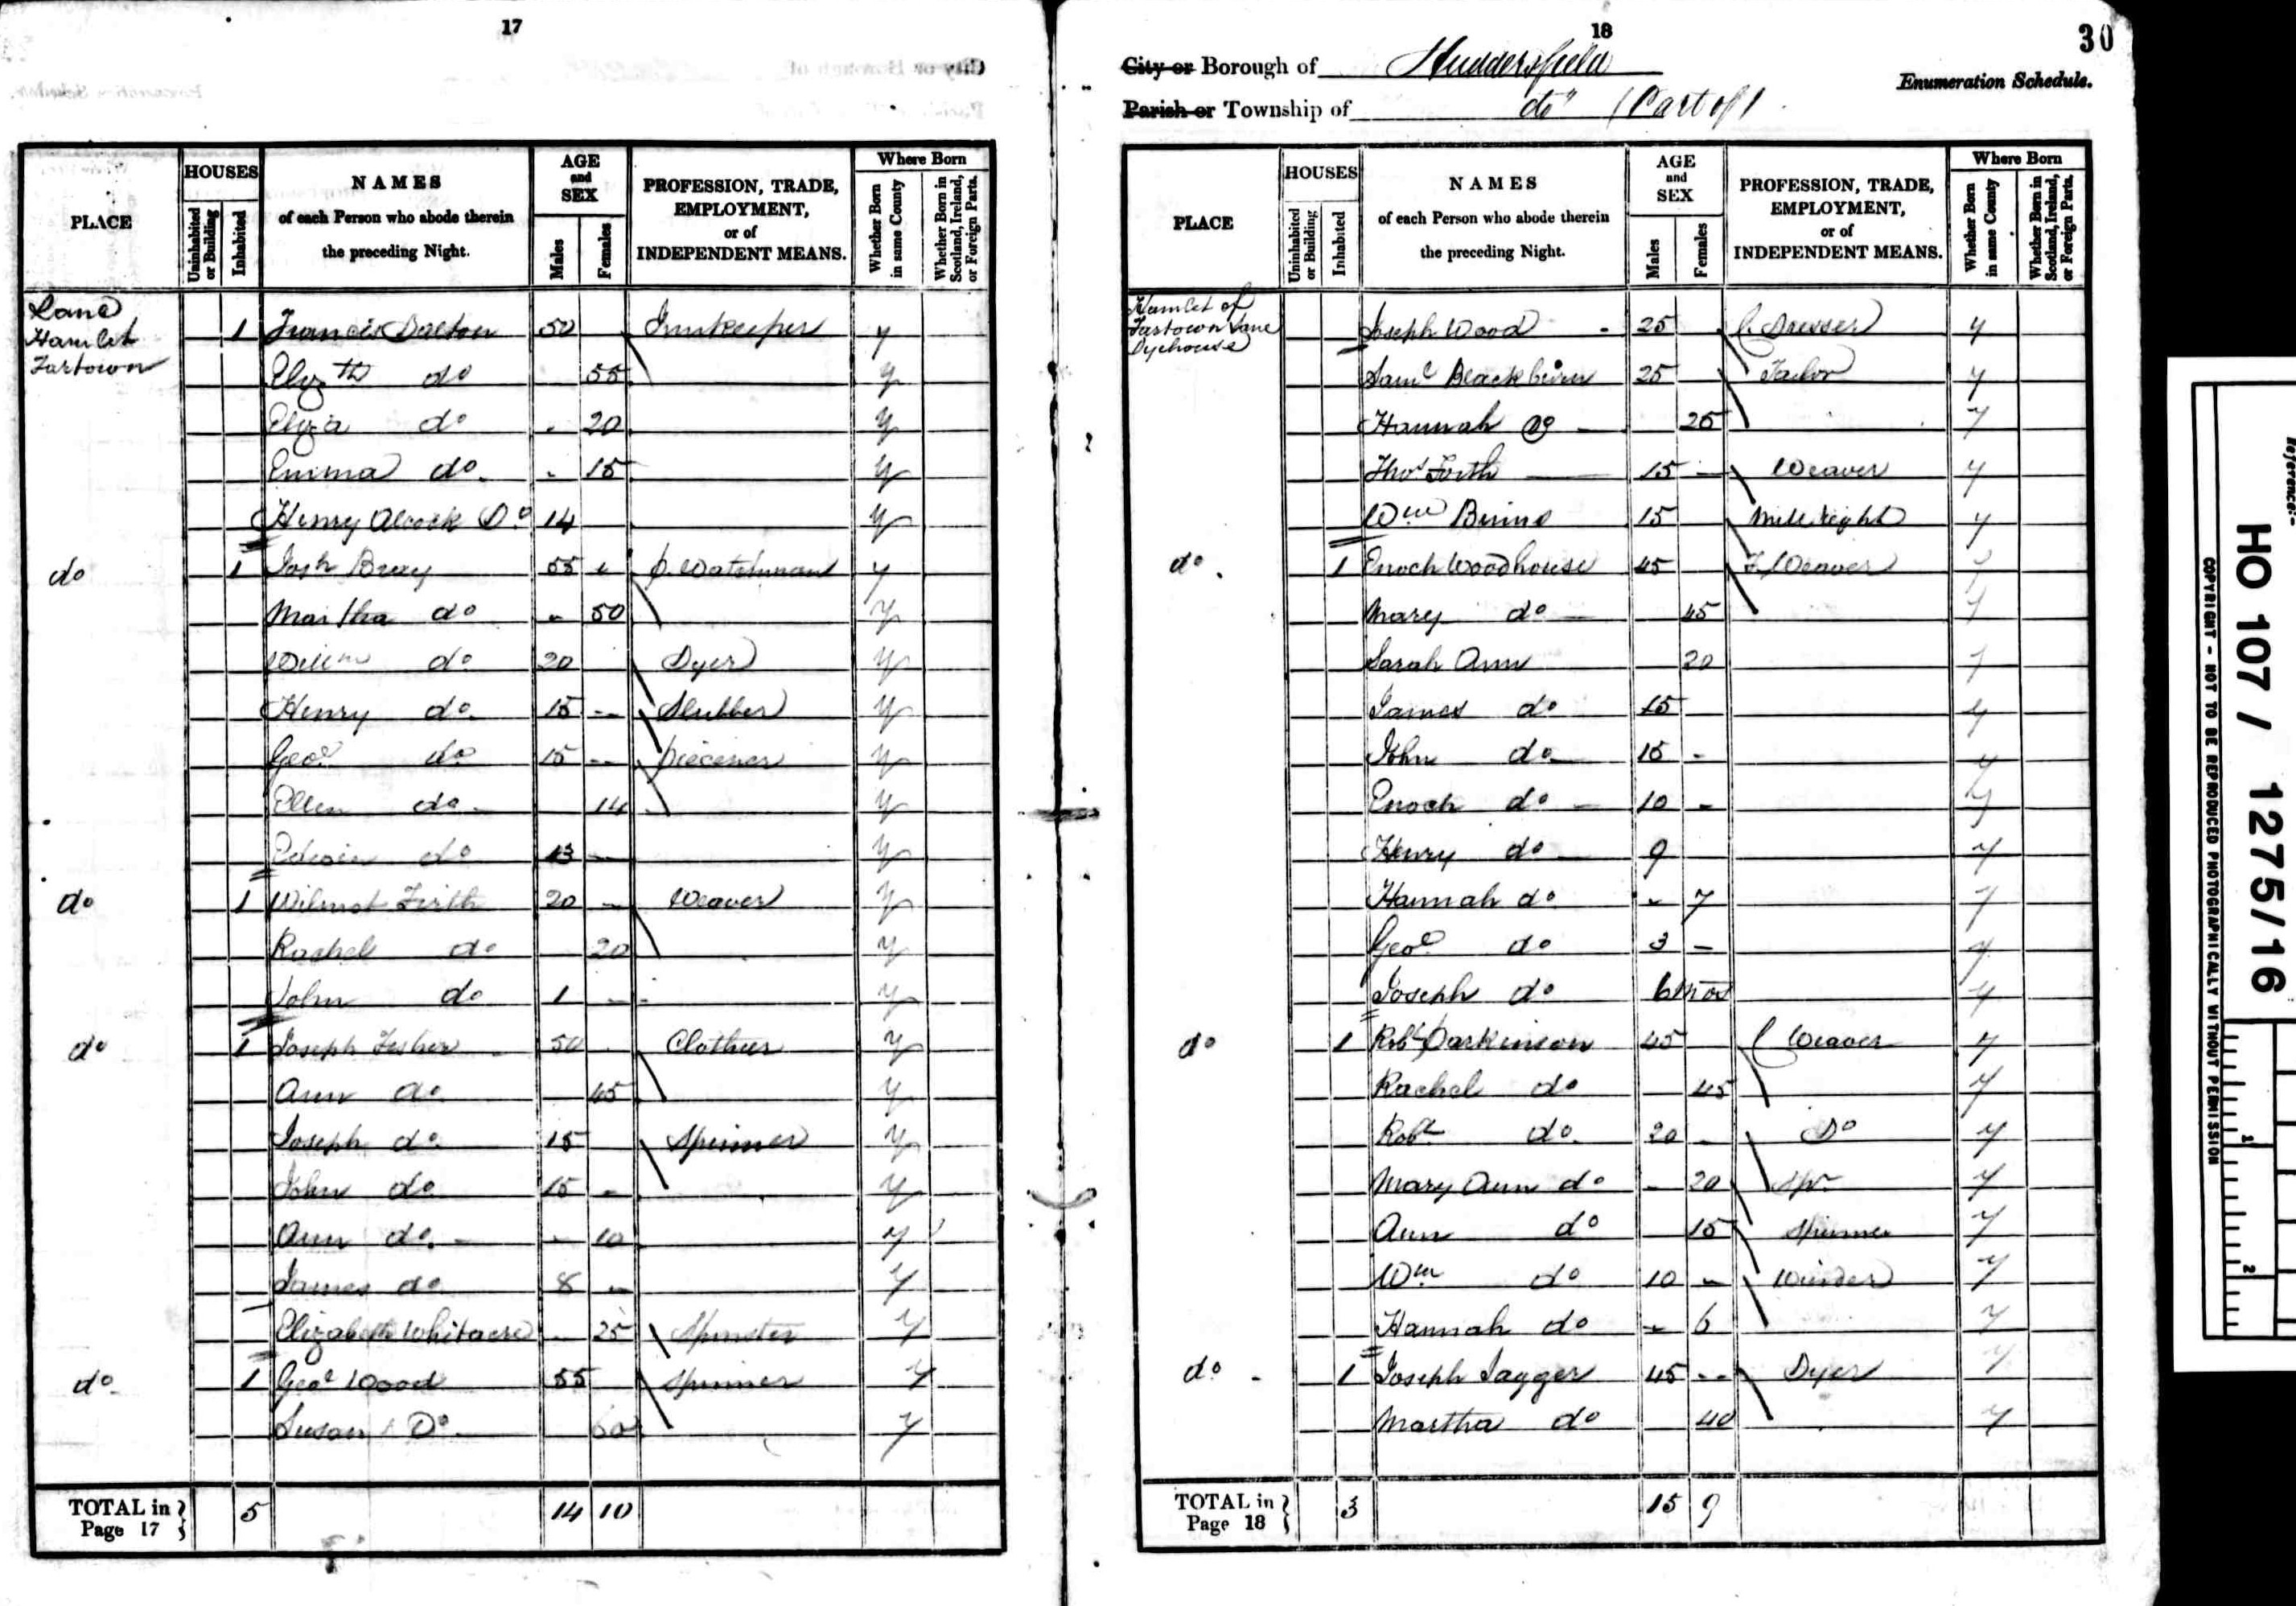 17
PLACE
HOUSES
Uninhabited or Building
Inhabited
NAMES
of each Person who abode therein
the preceding Night.
AGE
and
SEX
Males
Females
PROFESSION, TRADE,
EMPLOYMENT,
or of
INDEPENDENT MEANS.
Where Born
Whether Born in same County
Whether Born in Scotland, Ireland, or Foreign Parts.
Lane
Hamlet
Fartown
1 Francis Dalton 50 Innkeeper y
Elizth do 55 y
Eliza do 20 y
Emma do 15 y
Henry Alcock Do 14 y
do 1 Josh Bray 55 p. Watchman y
Martha do 50 y
Willm do 20 Dyer y
Henry do 15 Slubber y
Geoe do 15 piecener y
Ellen do 14 y
Edwin do 13 y
do 1 Wilmot Firth 20 Weaver y
Rachel do 20 y
John do 1 y
do 1 Joseph Fisher 50 Clothier y
Ann do 45 y
Joseph do 15 Spinner y
John do 15 y
Ann do 10 y
James do 8 y
Elizabeth Whitacre 25 Spinster y
do 1 Geoe Wood 55 Spinner y
Susan Do 60 y
TOTAL in Page 17 5 14 10
18
30
City or Borough of Huddersfield
Enumeration Schedule.
Parish or Township of do (Part of)
PLACE
HOUSES
Uninhabited or Building
Inhabited
NAMES
of each Person who abode therein
the preceding Night.
AGE
and
SEX
Males
Females
PROFESSION, TRADE,
EMPLOYMENT,
or of
INDEPENDENT MEANS.
Where Born
Whether Born in same County
Whether Born in Scotland, Ireland, or Foreign Parts.
Hamlet of
Fartown Lane
Dyehouse
Joseph Wood 25 C. Dresser y
Saml Blackburn 25 Tailor y
Hannah Do 25 y
Thos Firth 15 Weaver y
Wm Binns 15 Millwright y
do 1 Enoch Woodhouse 45 F Weaver y
Mary do 45 y
Sarah Ann 20 y
James do 15 y
John do 15 y
Enoch do 10 y
Henry do 9 y
Hannah do 7 y
Geoe do 3 y
Joseph do 6 mos y
do 1 Robt Parkinson 45 C Weaver y
Rachel do 45 y
Robt do 20 Do y
Mary Ann do 20 Spr y
Ann do 15 Spinner y
Wm do 10 Winder y
Hannah do 6 y
do 1 Joseph Jagger 45 Dyer y
Martha do 40 y
TOTAL in Page 18 3 15 9
reference:-
HO 107 / 1275/16
COPYRIGHT - NOT TO BE REPRODUCED PHOTOGRAPHICALLY WITHOUT PERMISSION
1
2